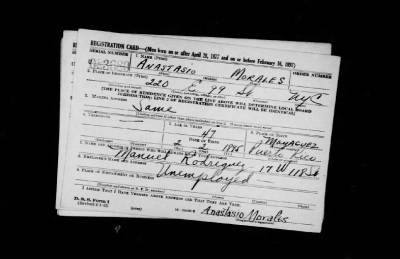 REGISTRATION CARD—(Men born on or after April 28, 1877 and on or before February 16, 1897)
SERIAL NUMBER 1. NAME (Print) ORDER NUMBER
ANASTASIO MORALES
2. PLACE OF RESIDENCE (Print)
220 E 99 St NYC
[THE PLACE OF RESIDENCE GIVEN ON THE LINE ABOVE WILL DETERMINE LOCAL BOARD
JURISDICTION; LINE 2 OF REGISTRATION CERTIFICATE WILL BE IDENTICAL]
3. MAILING ADDRESS
Same
4. TELEPHONE 5. AGE IN YEARS 6. PLACE OF BIRTH
47 MAYAGUEZ
DATE OF BIRTH
2 2 Puerto Rico
7. NAME AND ADDRESS OF PERSON WHO WILL ALWAYS KNOW YOUR ADDRESS
Manuel Rodriguez 17 W 118 St
8. EMPLOYER'S NAME AND ADDRESS
Unemployed
9. PLACE OF EMPLOYMENT OR BUSINESS
I AFFIRM THAT I HAVE VERIFIED ABOVE ANSWERS AND THAT THEY ARE TRUE.
D. S. S. Form 1
Anastasio Morales